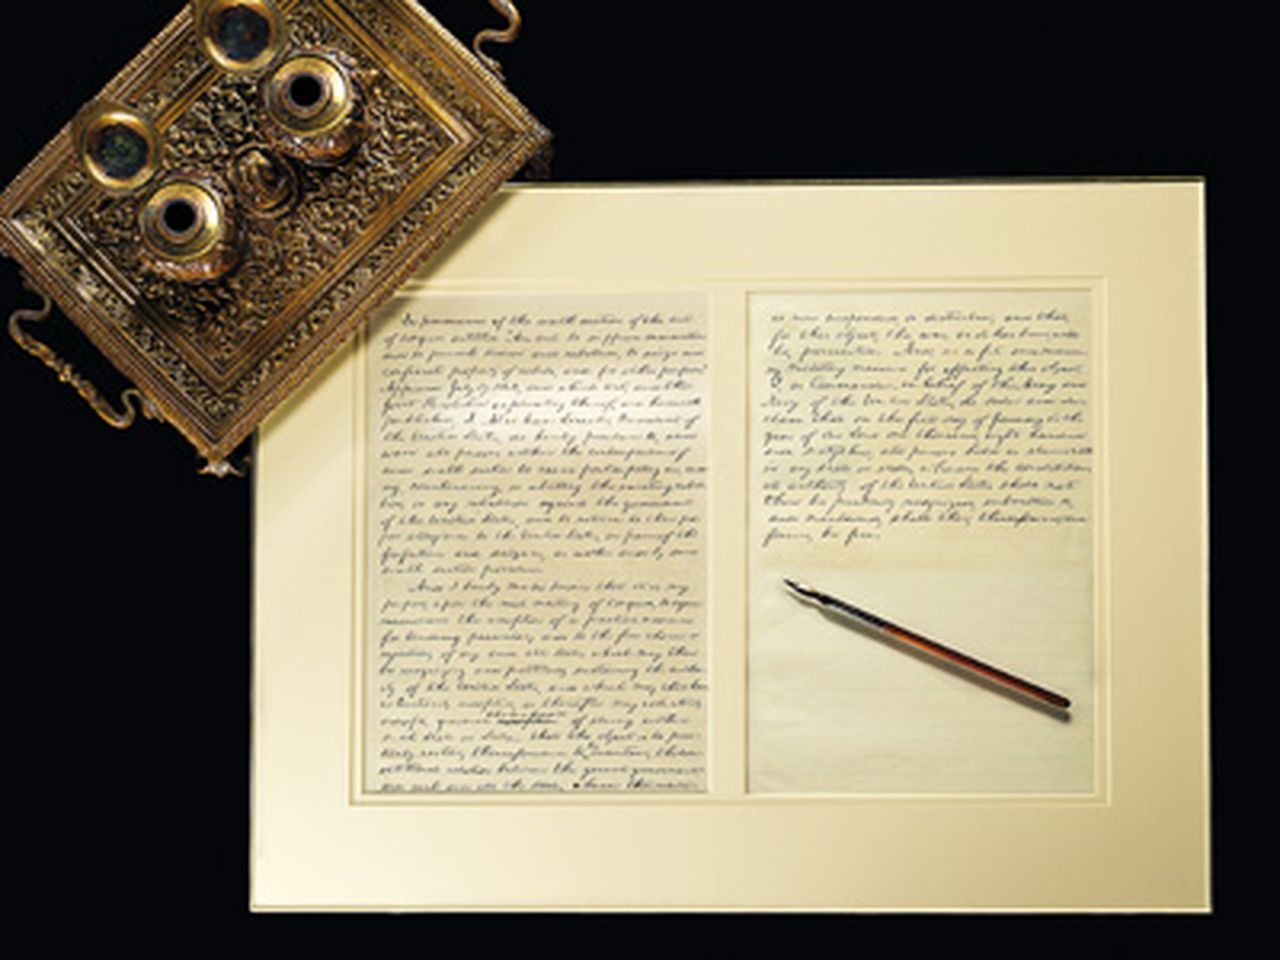 In pursuance of the sixth section of the act
of congress entitled "An act to suppress insurrection
and to punish treason and rebellion, to seize and
confiscate property of rebels, and for other purposes"
Approved July 17. 1862, and which act, and the
Joint Resolution explanatory thereof, are herewith
published, I, Abraham Lincoln, President of
the United States, do hereby proclaim to, and
warn all persons within the contemplation of
said sixth section to cease participating in, aid-
ing, countenancing, or abetting the existing rebel-
lion, or any rebellion against the government
of the United States, and to return to their pro-
per allegiance to the United States, on pain of the
forfeitures and seizures, as within and by said
sixth section provided
And I hereby make known that it is my
purpose, upon the next meeting of Congress, to again
recommend the adoption of a practical measure
for tendering pecuniary aid to the free choice or
rejection, of any and all States which may then
be recognizing and practically sustaining the author-
ity of the United States, and which may then have
voluntarily adopted, or thereafter may voluntarily
adopt, gradual abolishment of slavery within
such State or States that the object is to prac-
tically restore, thenceforward to be maintain, the con-
stitutional relation between the general government,
and each, and all the states, wherein that relation
is now suspended, or disturbed; and that,
for this object, the war, as it has been, will
be, prosecuted. And, as a fit and necessary
military measure for effecting this object,
I, as Commander-in-Chief of the Army and
Navy of the United States, do order and de-
clare that on the first day of January in the
year of Our Lord one thousand, eight hundred
and sixtythree, all persons held as slaves with-
in any state or states, wherein the constitutional
authority of the United States shall not
then be practically recognized, submitted to,
and maintained, shall then, thenceforward, and
forever, be free.